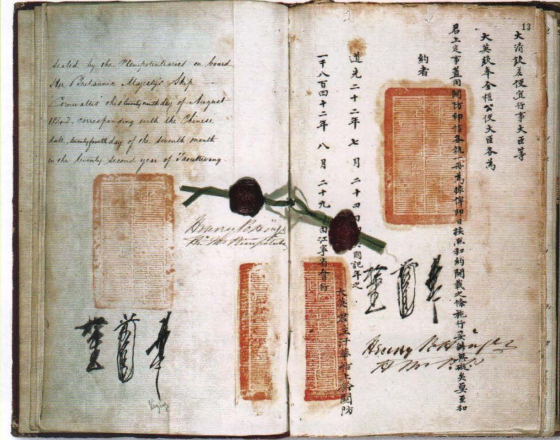 sealed by the Plenipotentiaries on board
Her Britannic Majesty's Ship
Cornwallis this twenty ninth day of August
1842, corresponding with the Chinese
date, twenty fourth day of the seventh month
in the twenty second year of Taoukwang
Henry Pottinger
13
大清欽差便宜行事大臣等
大英欽奉全權公使大臣各為
君上定事蓋用關防印信各執一冊為據俾即日按照和約開載之條施行妥辦無礙矣要至和
約者
道光二十二年七月二十四日國記年之
一千八百四十二年八月二十九由江寧省會行
大英君主汗華船上鈐關防
Henry Pottinger